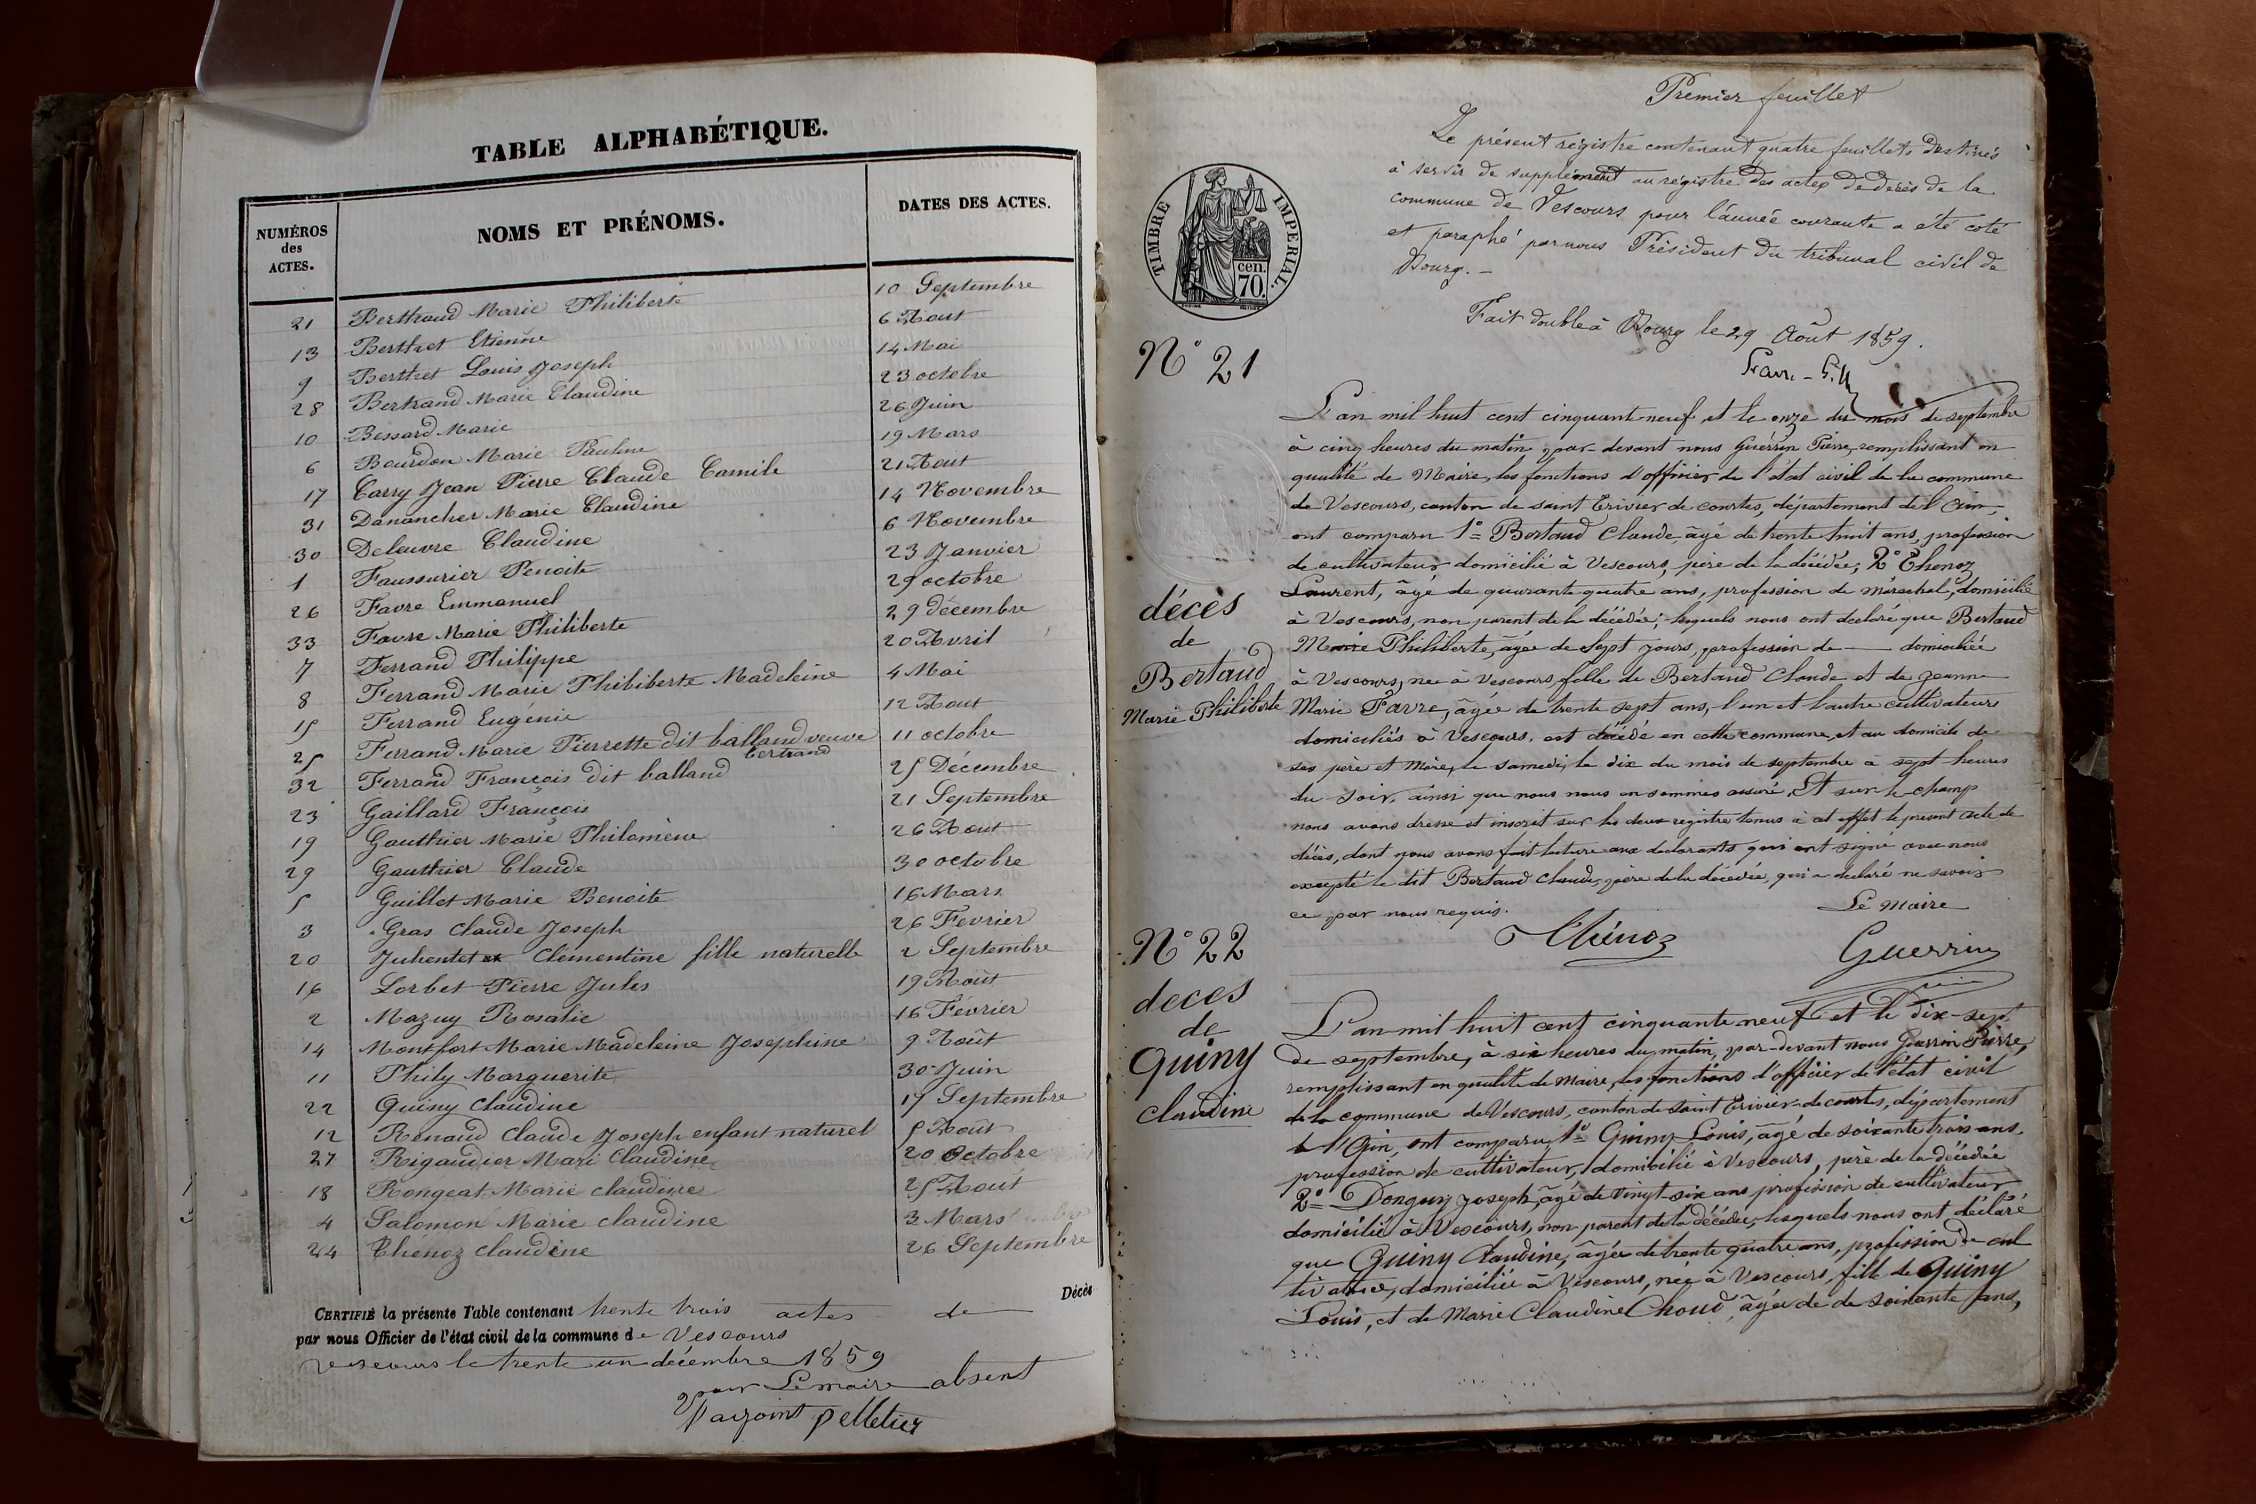 TABLE ALPHABÉTIQUE.
NUMÉROS des ACTES. NOMS ET PRÉNOMS. DATES DES ACTES.
21 Berthaud Marie Philiberte 10 Septembre
13 Berthet Etienne 6 Aout
9 Berthet Louis Joseph 14 Mai
28 Bertrand Marie Claudine 23 octobre
10 Bessard Marie 26 Juin
6 Bourdon Marie Pauline 19 Mars
17 Carry Jean Pierre Claude Camile 21 Aout
31 Danancher Marie Claudine 14 Novembre
30 Deleuvre Claudine 6 Novembre
1 Faussurier Benoite 23 Janvier
26 Favre Emmanuel 29 octobre
33 Favre Marie Philiberte 29 décembre
7 Ferrand Philippe 20 Avril
8 Ferrand Marie Philiberte Madeleine 4 Mai
15 Ferrand Eugénie 12 Aout
25 Ferrand Marie Pierrette dit balland veuve bertrand 11 octobre
32 Ferrand François dit balland 25 Décembre
23 Gaillard François 21 Septembre
19 Gauthier Marie Philomène 26 Aout
29 Gauthier Claude 30 octobre
5 Guillet Marie Benoite 16 Mars
3 Gras Claude Joseph 26 Fevrier
20 Juhentet Clementine fille naturelle 2 Septembre
16 Lorbet Pierre Jules 19 Août
2 Mazuy Rosalie 16 Février
14 Montfort Marie Madeleine Josephine 9 Août
11 Phily Marguerite 30 Juin
22 Quiny Claudine 17 Septembre
12 Renaud Claude Joseph enfant naturel 5 Août
27 Rigaudier Mari Claudine 20 Octobre
18 Rongeat Marie claudine 25 Août
4 Salomon Marie claudine 3 Mars
24 Thénoz claudine 26 Septembre
Décès
CERTIFIÉ la présente Table contenant trente trois actes de
par nous Officier de l'état civil de la commune de Vescours
vescours le trente un décembre 1859
pour Le maire absent
l'adjoint pelletier
Premier feuillet
Le présent régistre contenant quatre feuillets destinés
à servir de supplément au régistre des actes de décès de la
commune de Vescours pour l'année courante a été coté
et paraphé par nous Président du tribunal civil de
Bourg. -
Fait double à Bourg le 29 Août 1859.
TIMBRE IMPERIAL.
cen. 70.
N° 21
décès
de
Bertaud
Marie Philiberte
L'an mil huit cent cinquant neuf et le onze du mois de septembre
à cinq heures du matin, par-devant nous Guérrin Pierre, remplissant en
qualité de Maire, les fonctions d'officier de l'état civil de la commune
de Vescours, canton de saint Trivier de courtes, département de l'Ain,
ont comparu 1° Bertaud Claude, âgé de trente huit ans, profession
de cultivateur domicilié à Vescours, père de la décédée; 2° Thenoz
Laurent, âgé de quarante quatre ans, profession de maréchal, domicilié
à Vescours, non parent de la décédée; lesquels nous ont declaré que Bertaud
Marie Philiberte, âgée de Sept jours, profession de — domiciliée
à Vescours, née à Vescours, fille de Bertaud Claude et de Jeanne
Marie Favre, âgée de trente sept ans, l'un et l'autre cultivateurs
domiciliés à Vescours, est décédé en cette commune, et au domicile de
ses père et Mère, le samedi, le dix du mois de septembre a sept heures
du soir, ainsi que nous nous en sommes assuré. Et sur le champ
nous avons dressé et inscrit sur les deux registre tenus à cet effet le présent acte de
décès, dont nous avons fait lecture aux declarants qui ont signé avec nous
excepté le dit Bertaud Claude, père de la décédée, qui a declaré ne savoir
ce par nous requis.
Le Maire
Thénoz
Guerrin
N° 22
deces
de
Quiny
claudine
L'an mil huit cent cinquante neuf et le dix-sept
de septembre, à six heures du matin, par-devant nous Guerrin Pierre,
remplissant en qualité de Maire, les fonctions d'officier de l'état civil
de la commune de Vescours, canton de saint Trivier de courtes, département
de l'Ain, ont comparu 1° Quiny Louis, âgé de soixante trois ans,
profession de cultivateur, domicilié à Vescours, père de la décédée
2° Donguy Joseph, âgé de vingt-six ans profession de cultivateur
domicilié à Vescours, non parent de la décédée, lesquels nous ont déclaré
que Quiny Claudine, âgée de trente quatre ans, profession de cul
tivatrice, domiciliée à Vescours, née à Vescours, fille de Quiny
Louis, et de Marie Claudine Choud, âgée de de soixante ans,